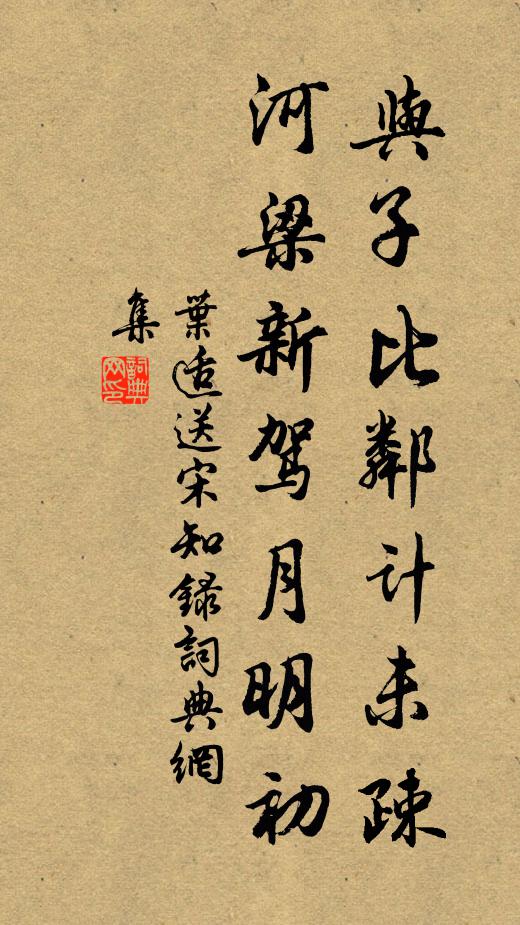 與子比鄰計未疎
河梁新駕月明初
葉适送宋知錄詞典網
集
詞典網印